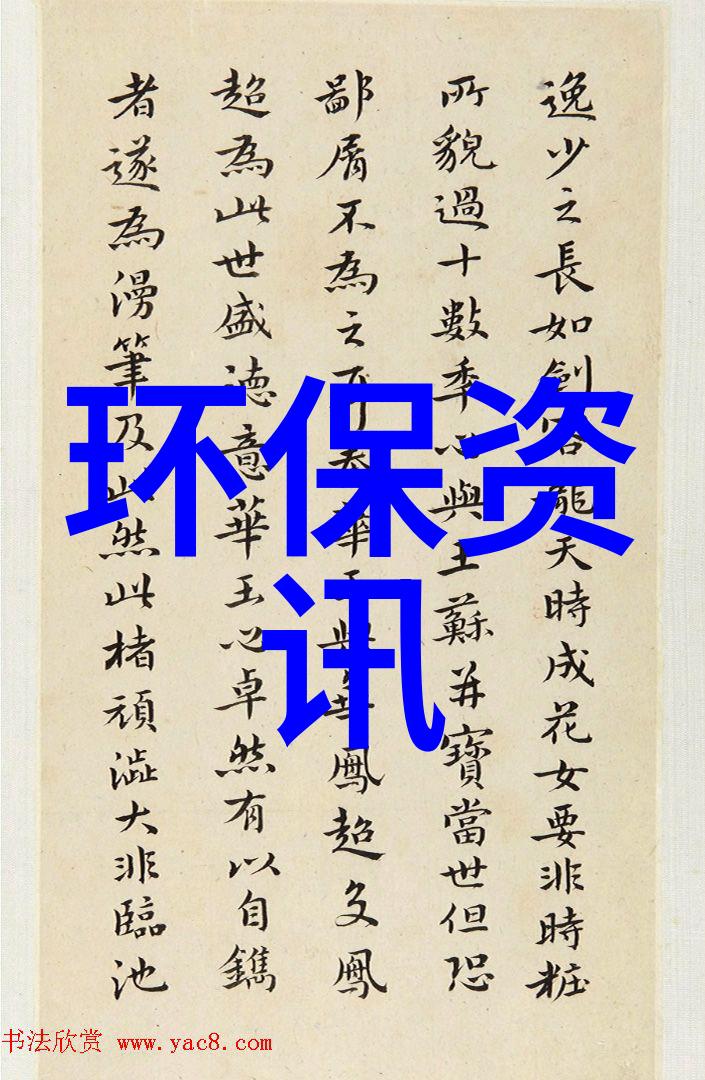 逸少之長如劍客龍天時成花女要非時粧
所貌過十數季心與王蘇并寶當世但恐
鄙屑不為之耳 華 與 鳳超文鳳
超為此世盛德意華玉心卓然有以自鐫
者遂為漫筆及此然此楮頑澁大非臨池
环保资
讯
书法欣赏 www.yac8.com